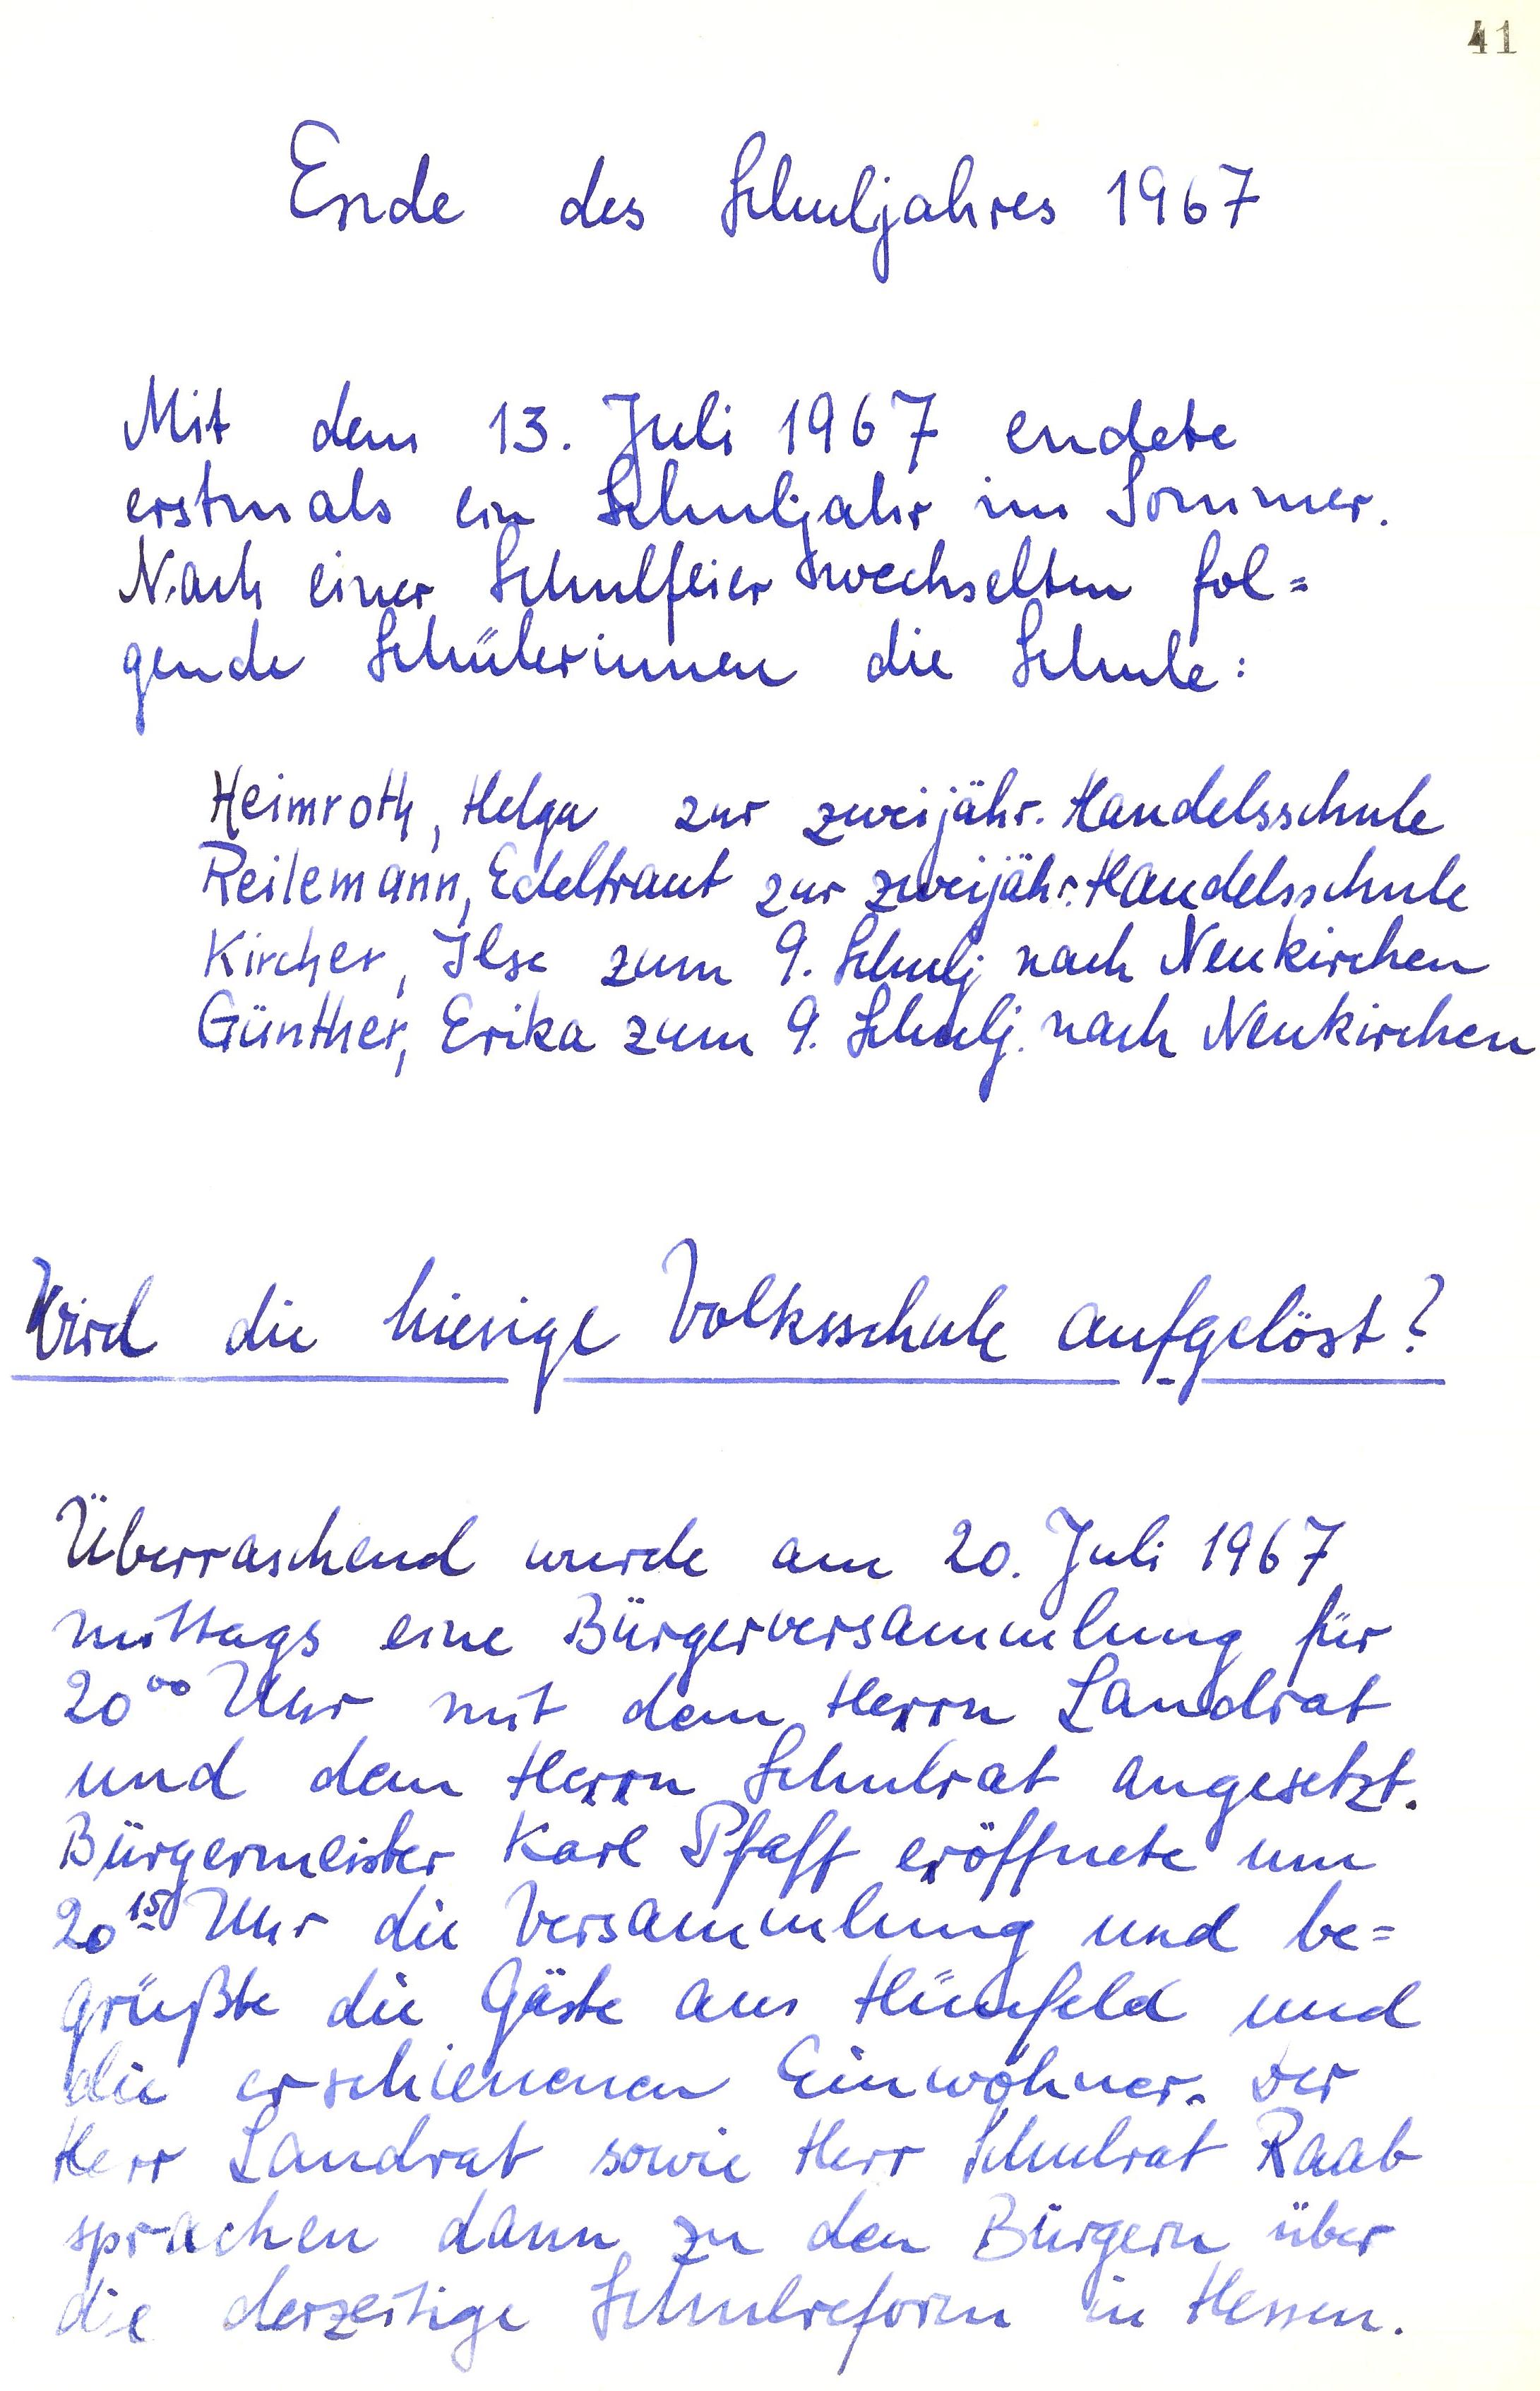 41
Ende des Schuljahres 1967
Mit dem 13. Juli 1967 endete
erstmals ein Schuljahr im Sommer.
Nach einer Schulfeier wechselten fol=
gende Schülerinnen die Schule:
Heimroth, Helga zur zweijähr. Handelsschule
Reilemann, Edeltraut zur zweijähr. Handelsschule
Kircher, Ilse zum 9. Schulj nach Neukirchen
Günther, Erika zum 9. Schulj. nach Neukirchen
Wird die hiesige Volksschule aufgelöst?
Überraschend wurde am 20. Juli 1967
mittags eine Bürgerversammlung für
20⁰⁰ Uhr mit dem Herrn Landrat
und dem Herrn Schulrat angesetzt.
Bürgermeister Karl Pfaff eröffnete um
20¹⁵ Uhr die Versammlung und be=
grüßte die Gäste aus Hünfeld und
die erschienenen Einwohner. Der
Herr Landrat sowie Herr Schulrat Raab
sprachen dann zu den Bürgern über
die derzeitige Schulreform in Hessen.